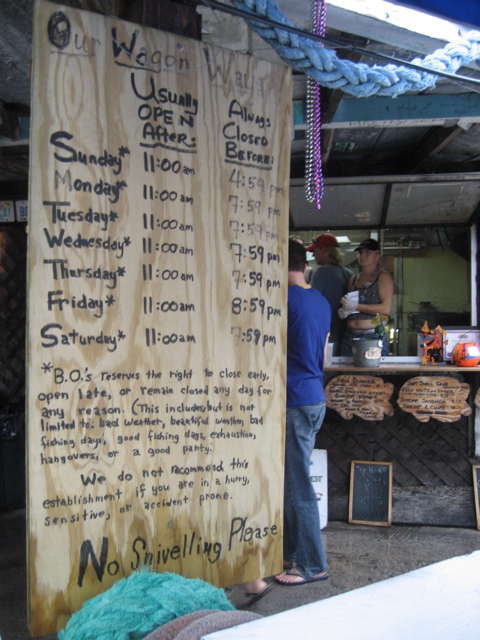 Our Wagon Ways
Usually OPEN After: Always Closed Before:
Sunday* 11:00am 4:59 pm
Monday* 11:00am 7:59 pm
Tuesday* 11:00am 7:59 pm
Wednesday* 11:00am 7:59 pm
Thursday* 11:00am 7:59 pm
Friday* 11:00am 8:59 pm
Saturday* 11:00am 7:59 pm
*B.O.'s reserves the right to close early,
open late, or remain closed any day for
any reason. (This includes but is not
limited to: bad weather, beautiful weather, bad
fishing days, good fishing days, exhaustion,
hangovers, or a good party.
We do not recommend this
establishment if you are in a hurry,
sensitive, or accident prone.
No Snivelling Please